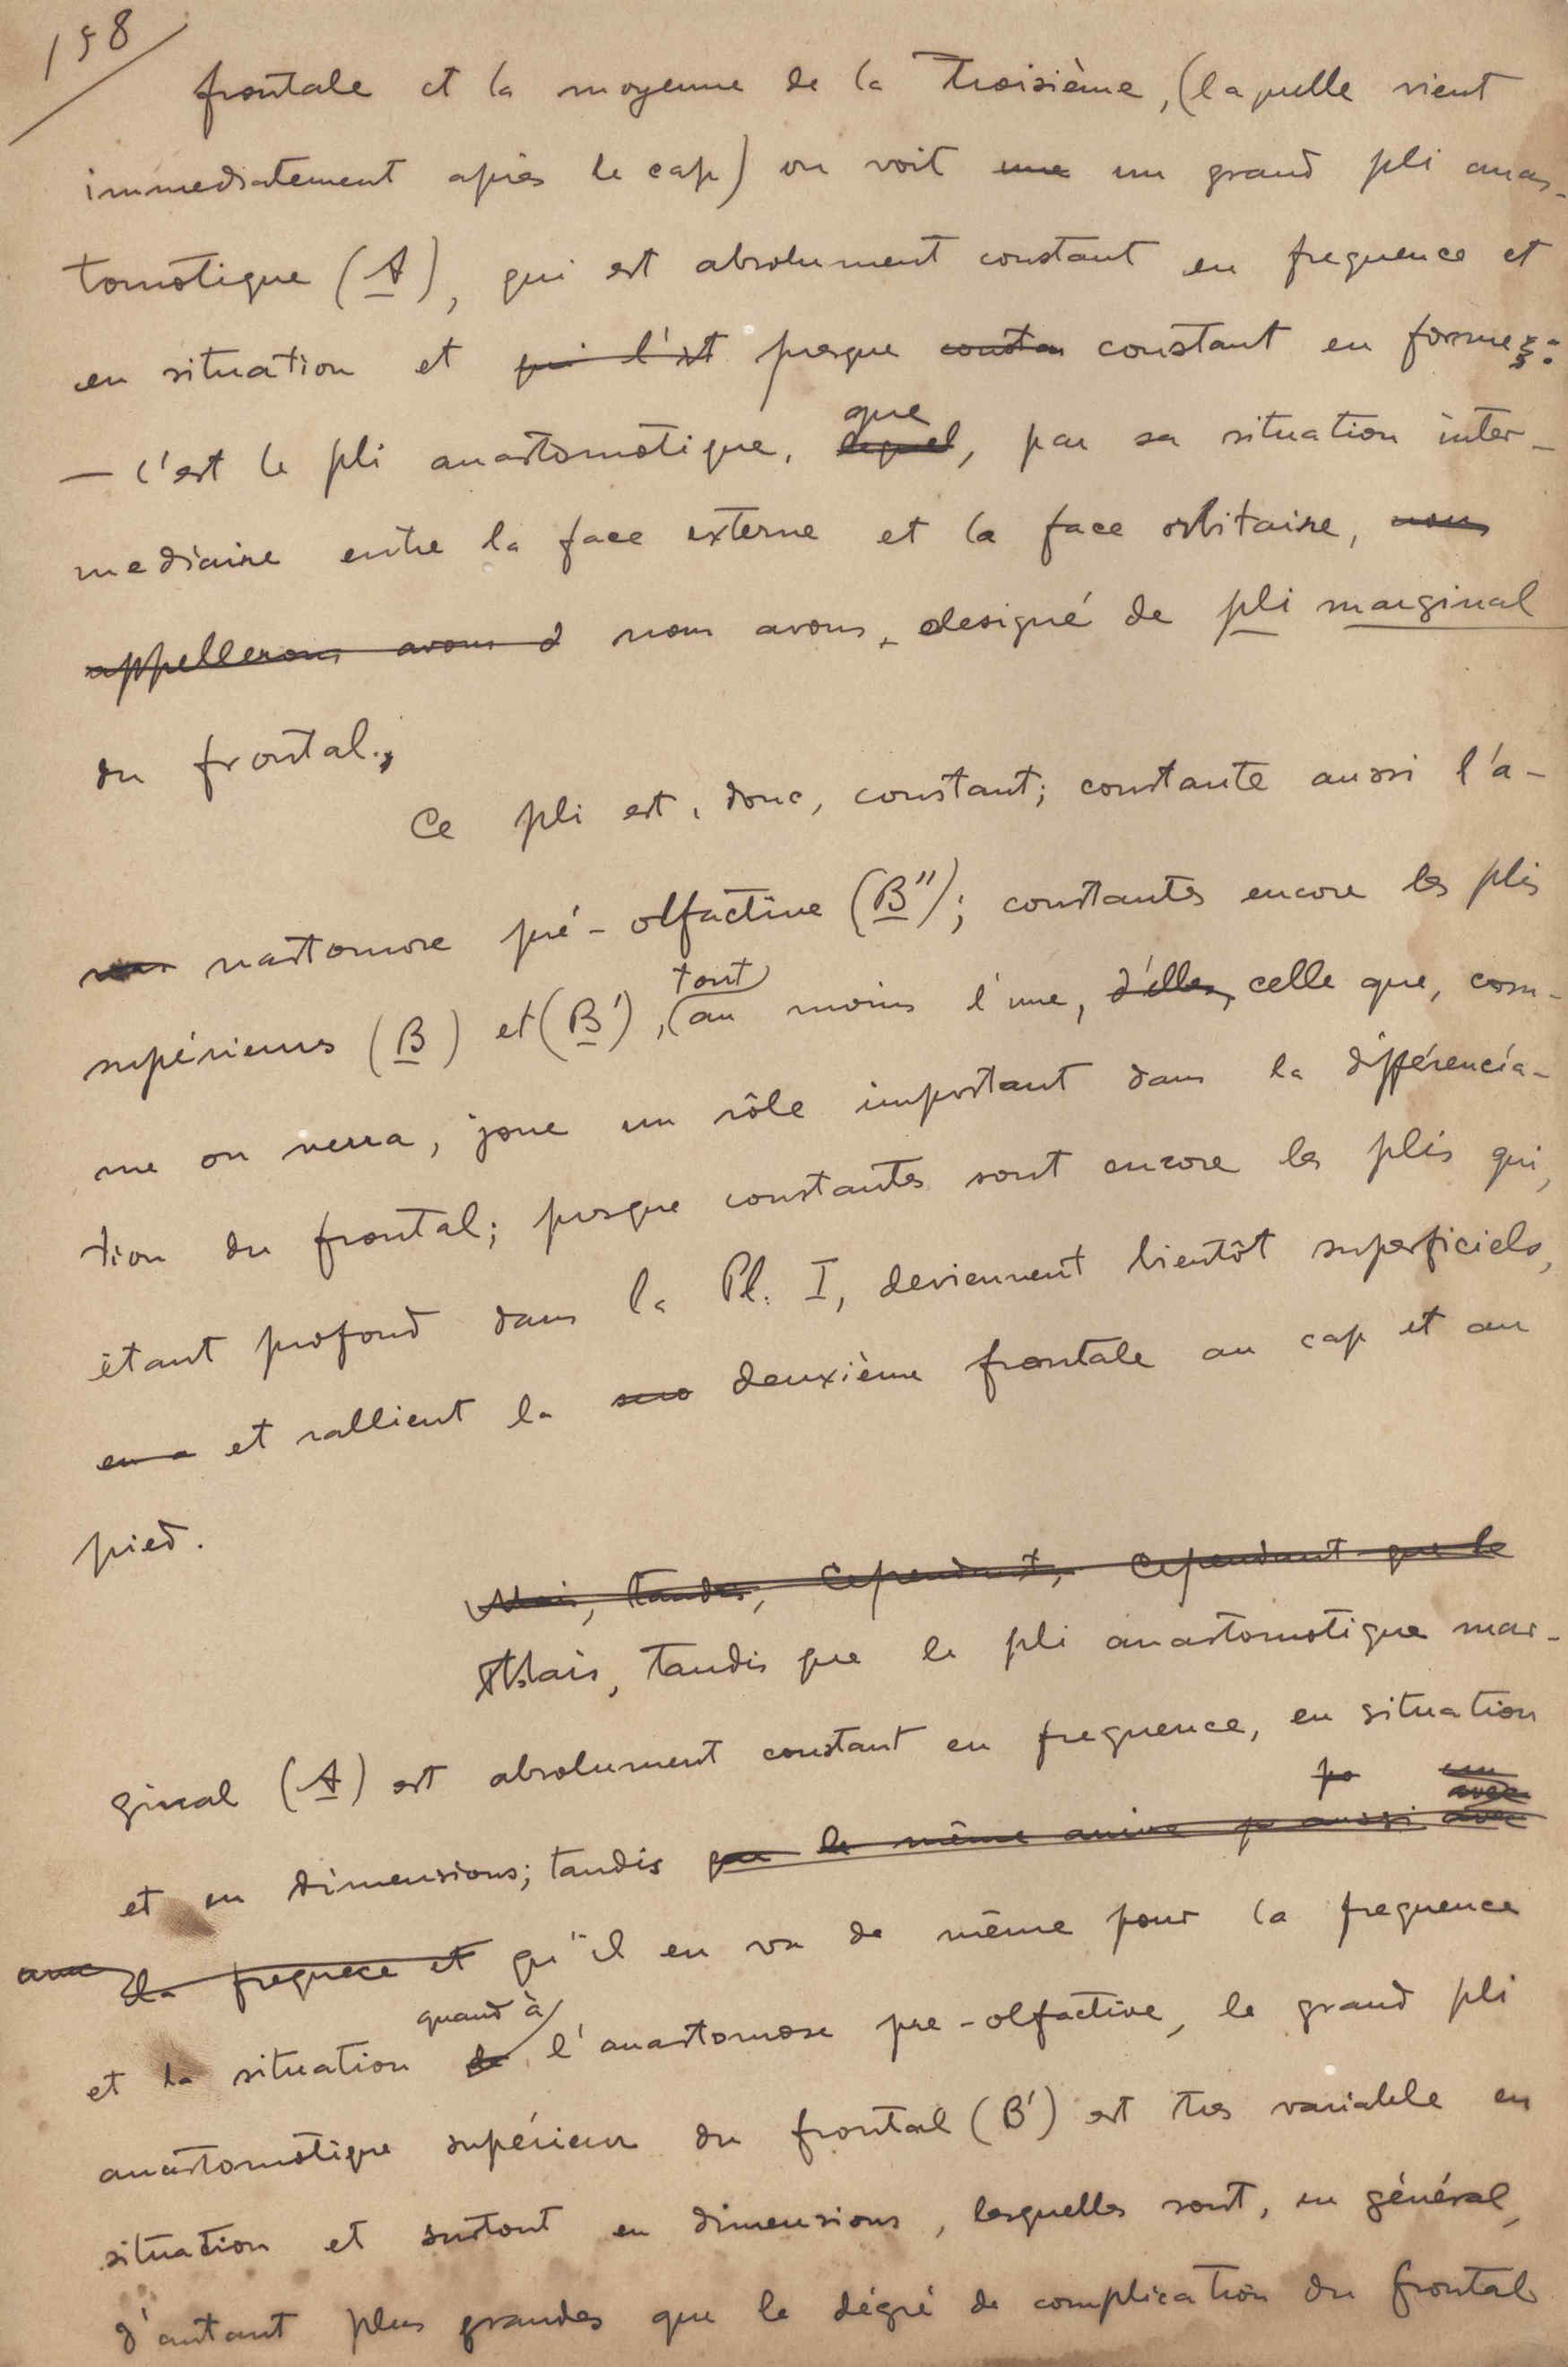 158
frontale et la moyenne de la troisième, (laquelle vient
immediatement après le cap) on voit une un grand pli anas-
tomotique (A), qui est absolument constant en frequence et
en situation et qui l'est presque constan constant en forme:
— c'est le pli anastomotique, lequel que, par sa situation inter-
mediaire entre la face externe et la face orbitaire, nous
appellerons avons d nous avons designé de pli marginal
du frontal.
Ce pli est, donc, constant; constante aussi l'a-
nastomose pré-olfactive (B''); constantes encore les plis
supérieurs (B) et (B'), (tout au moins l'une, d'elles, celle que, com-
me on verra, joue un rôle important dans la différencia-
tion du frontal; presque constantes sont encore les plis qui,
étant profond dans la Pl. I, deviennent bientôt superficiels,
en a et rallient la deuxième frontale au cap et au
pied.
Mais, tandis, Cependant, Cependant que le
Mais, tandis que le pli anastomotique mar-
ginal (A) est absolument constant en frequence, en situation
et en dimensions; tandis que le même arrive p aussi avec
avec la frequece et qu'il en va de même pour la frequence
et la situation de quand à l'anastomose pre-olfactive, le grand pli
anastomotique supérieur du frontal (B') est tres variable en
situation et surtout en dimensions, lesquelles sont, en général,
d'autant plus grandes que le dégré de complication du frontal